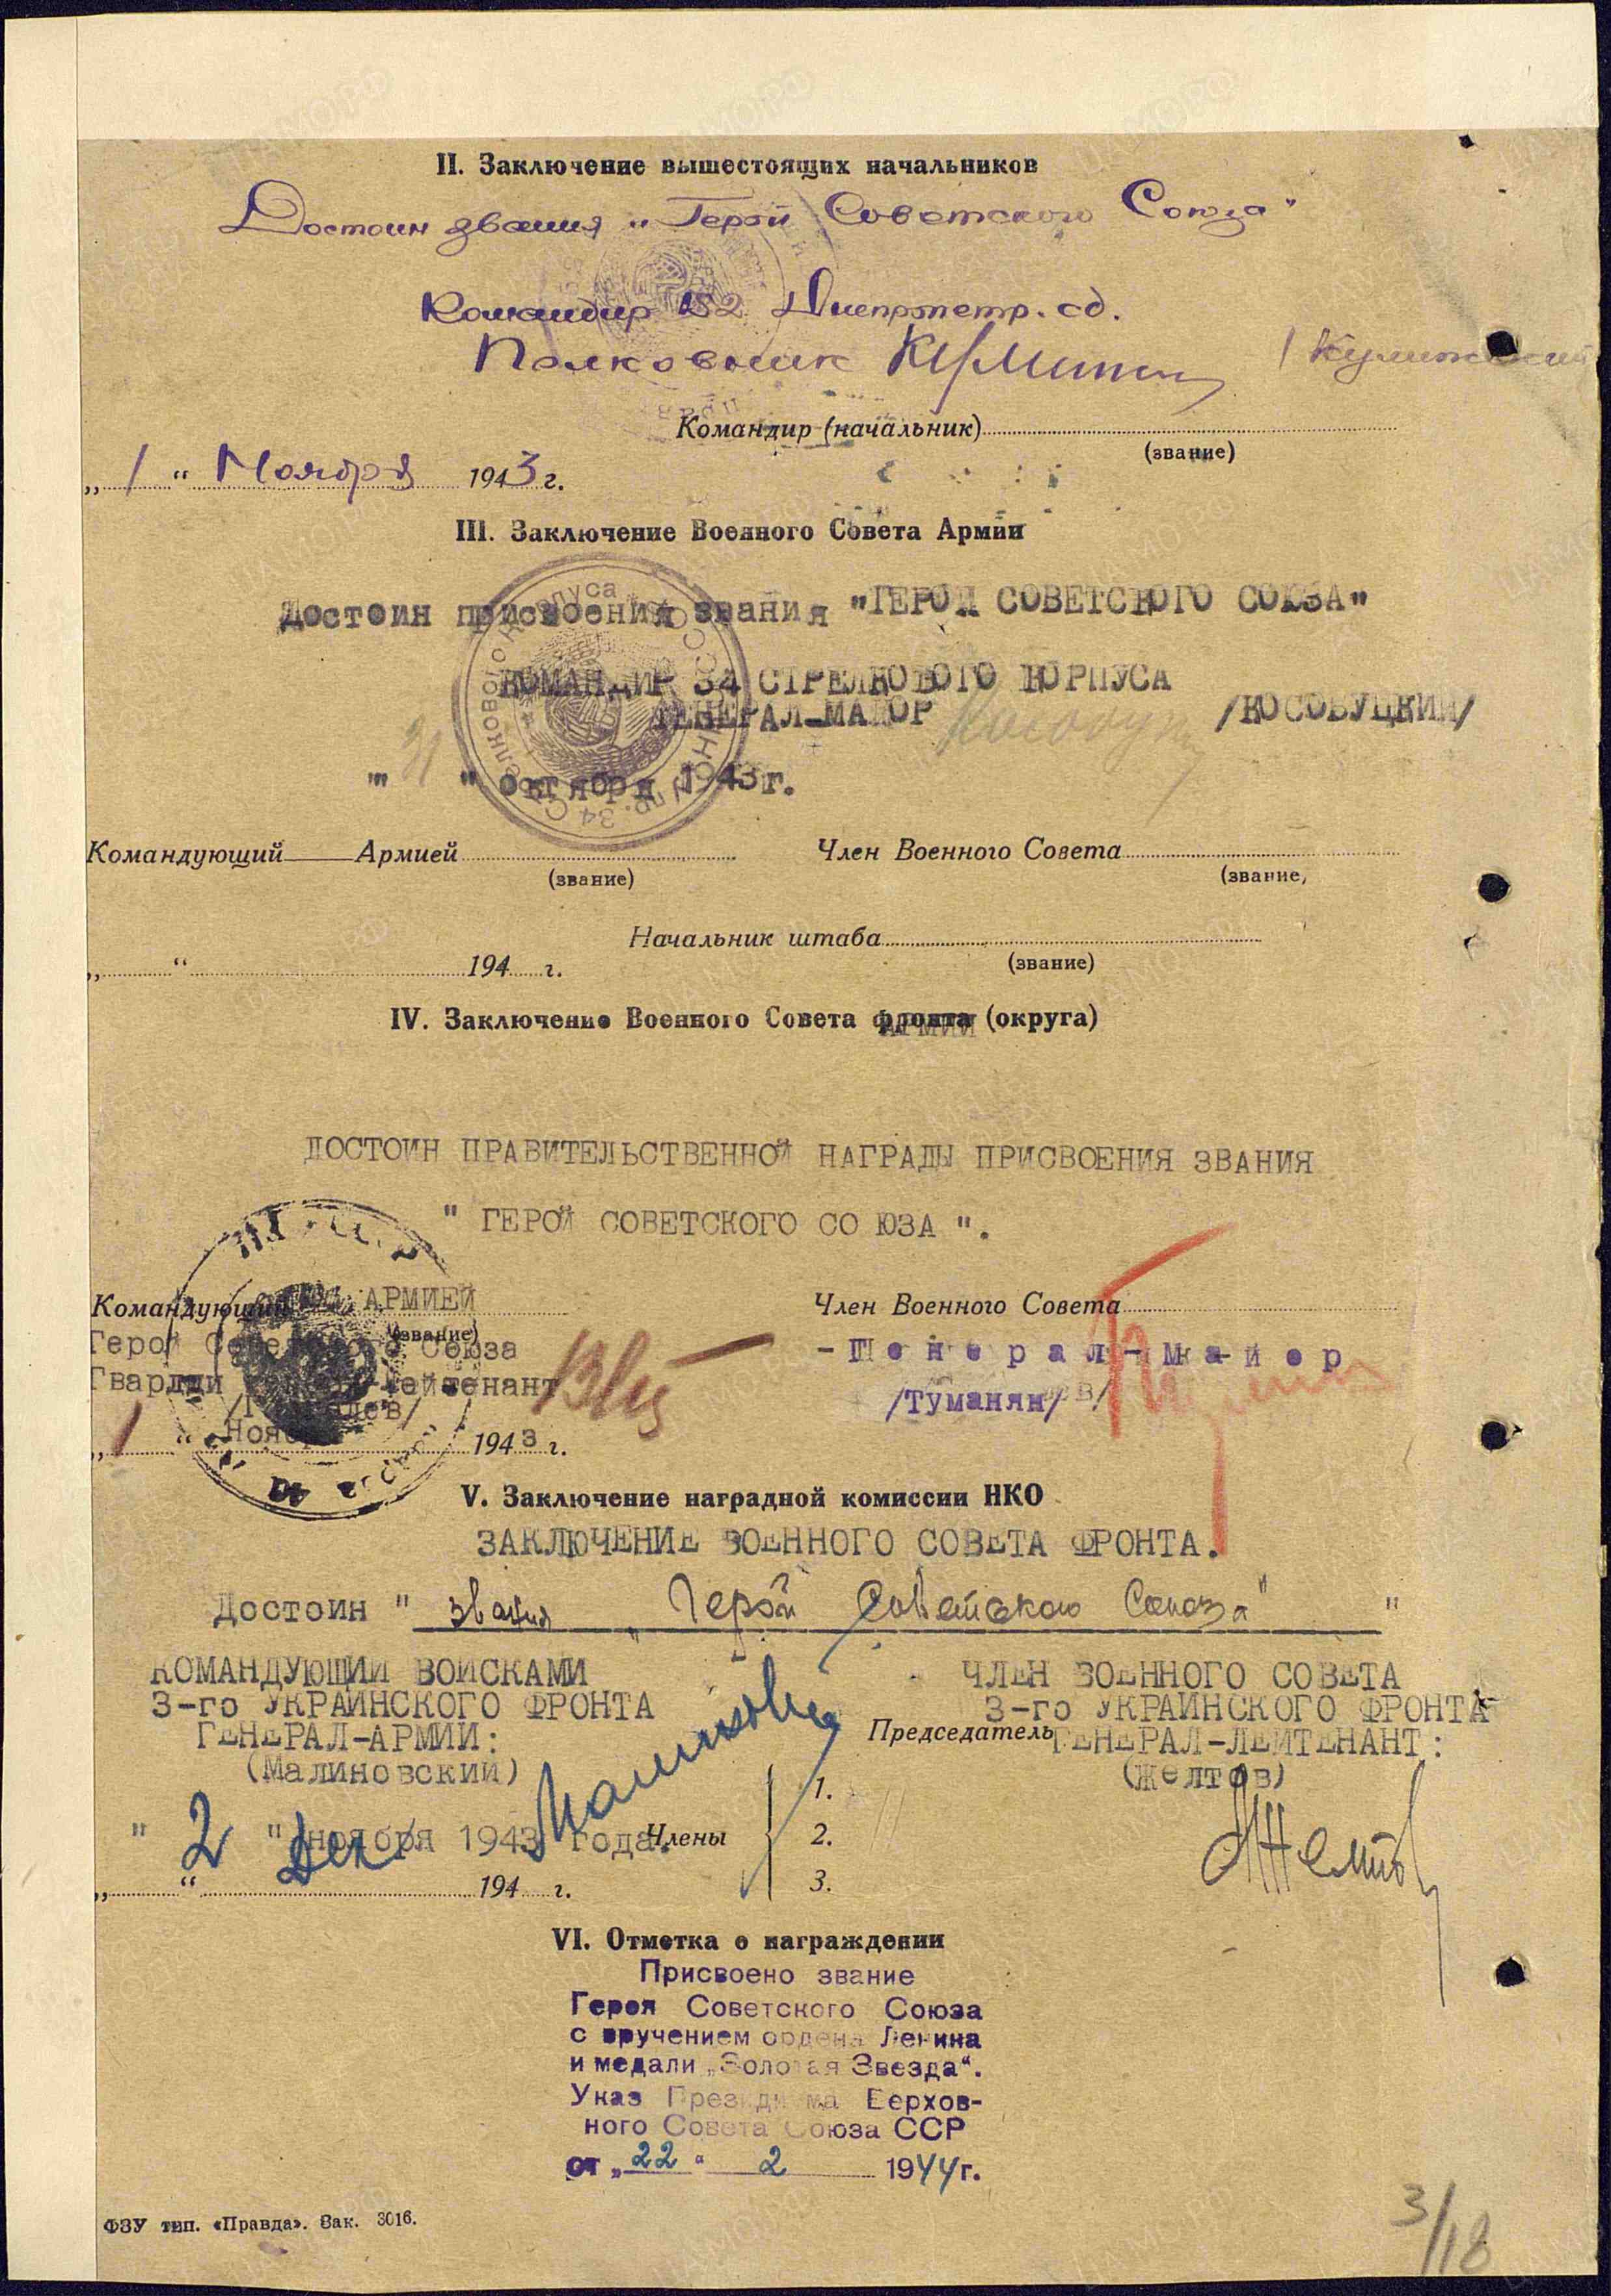 II. Заключение вышестоящих начальников
Достоин звания „Герой Советского Союза"
Командир 152 Днепропетр. сд.
Полковник
Командир (начальник)
(звание)
„1“ Ноября 1943 г.
III. Заключение Военного Совета Армии
Достоин присвоения звания "ГЕРОЙ СОВЕТСКОГО СОЮЗА"
КОМАНДИР 34 СТРЕЛКОВОГО КОРПУСА
ГЕНЕРАЛ-МАЙОР /КОСОБУЦКИЙ/
" 31 " октября 1943 г.
Командующий Армией Член Военного Совета
(звание) (звание,
Начальник штаба
(звание)
„ “ 194 г.
IV. Заключение Военного Совета фронта (округа)
АРМИИ
ДОСТОИН ПРАВИТЕЛЬСТВЕННОЙ НАГРАДЫ ПРИСВОЕНИЯ ЗВАНИЯ
" ГЕРОЙ СОВЕТСКОГО СОЮЗА ".
Командующий АРМИЕЙ Член Военного Совета
(звание)
Герой Советского Союза - Генерал-майор
Гвардии лейтенант
/Туманян/
„1“ Ноября 1943 г.
V. Заключение наградной комиссии НКО
ЗАКЛЮЧЕНИЕ ВОЕННОГО СОВЕТА ФРОНТА.
Достоин " звания „Герой Советского Союза" "
КОМАНДУЮЩИЙ ВОЙСКАМИ ЧЛЕН ВОЕННОГО СОВЕТА
3-го УКРАИНСКОГО ФРОНТА 3-го УКРАИНСКОГО ФРОНТА
Председатель
ГЕНЕРАЛ-АРМИИ: ГЕНЕРАЛ-ЛЕЙТЕНАНТ:
(Малиновский) (Желтов)
1.
" 2 " ноября дек 1943 года. Члены 2.
„ “ 194 г. 3.
VI. Отметка о награждении
Присвоено звание
Героя Советского Союза
с вручением ордена Ленина
и медали „Золотая Звезда“.
Указ Президиума Верхов-
ного Совета Союза ССР
от „22“ 2 1944 г.
ФЗУ тип. «Правда». Зак. 3016.
3/18